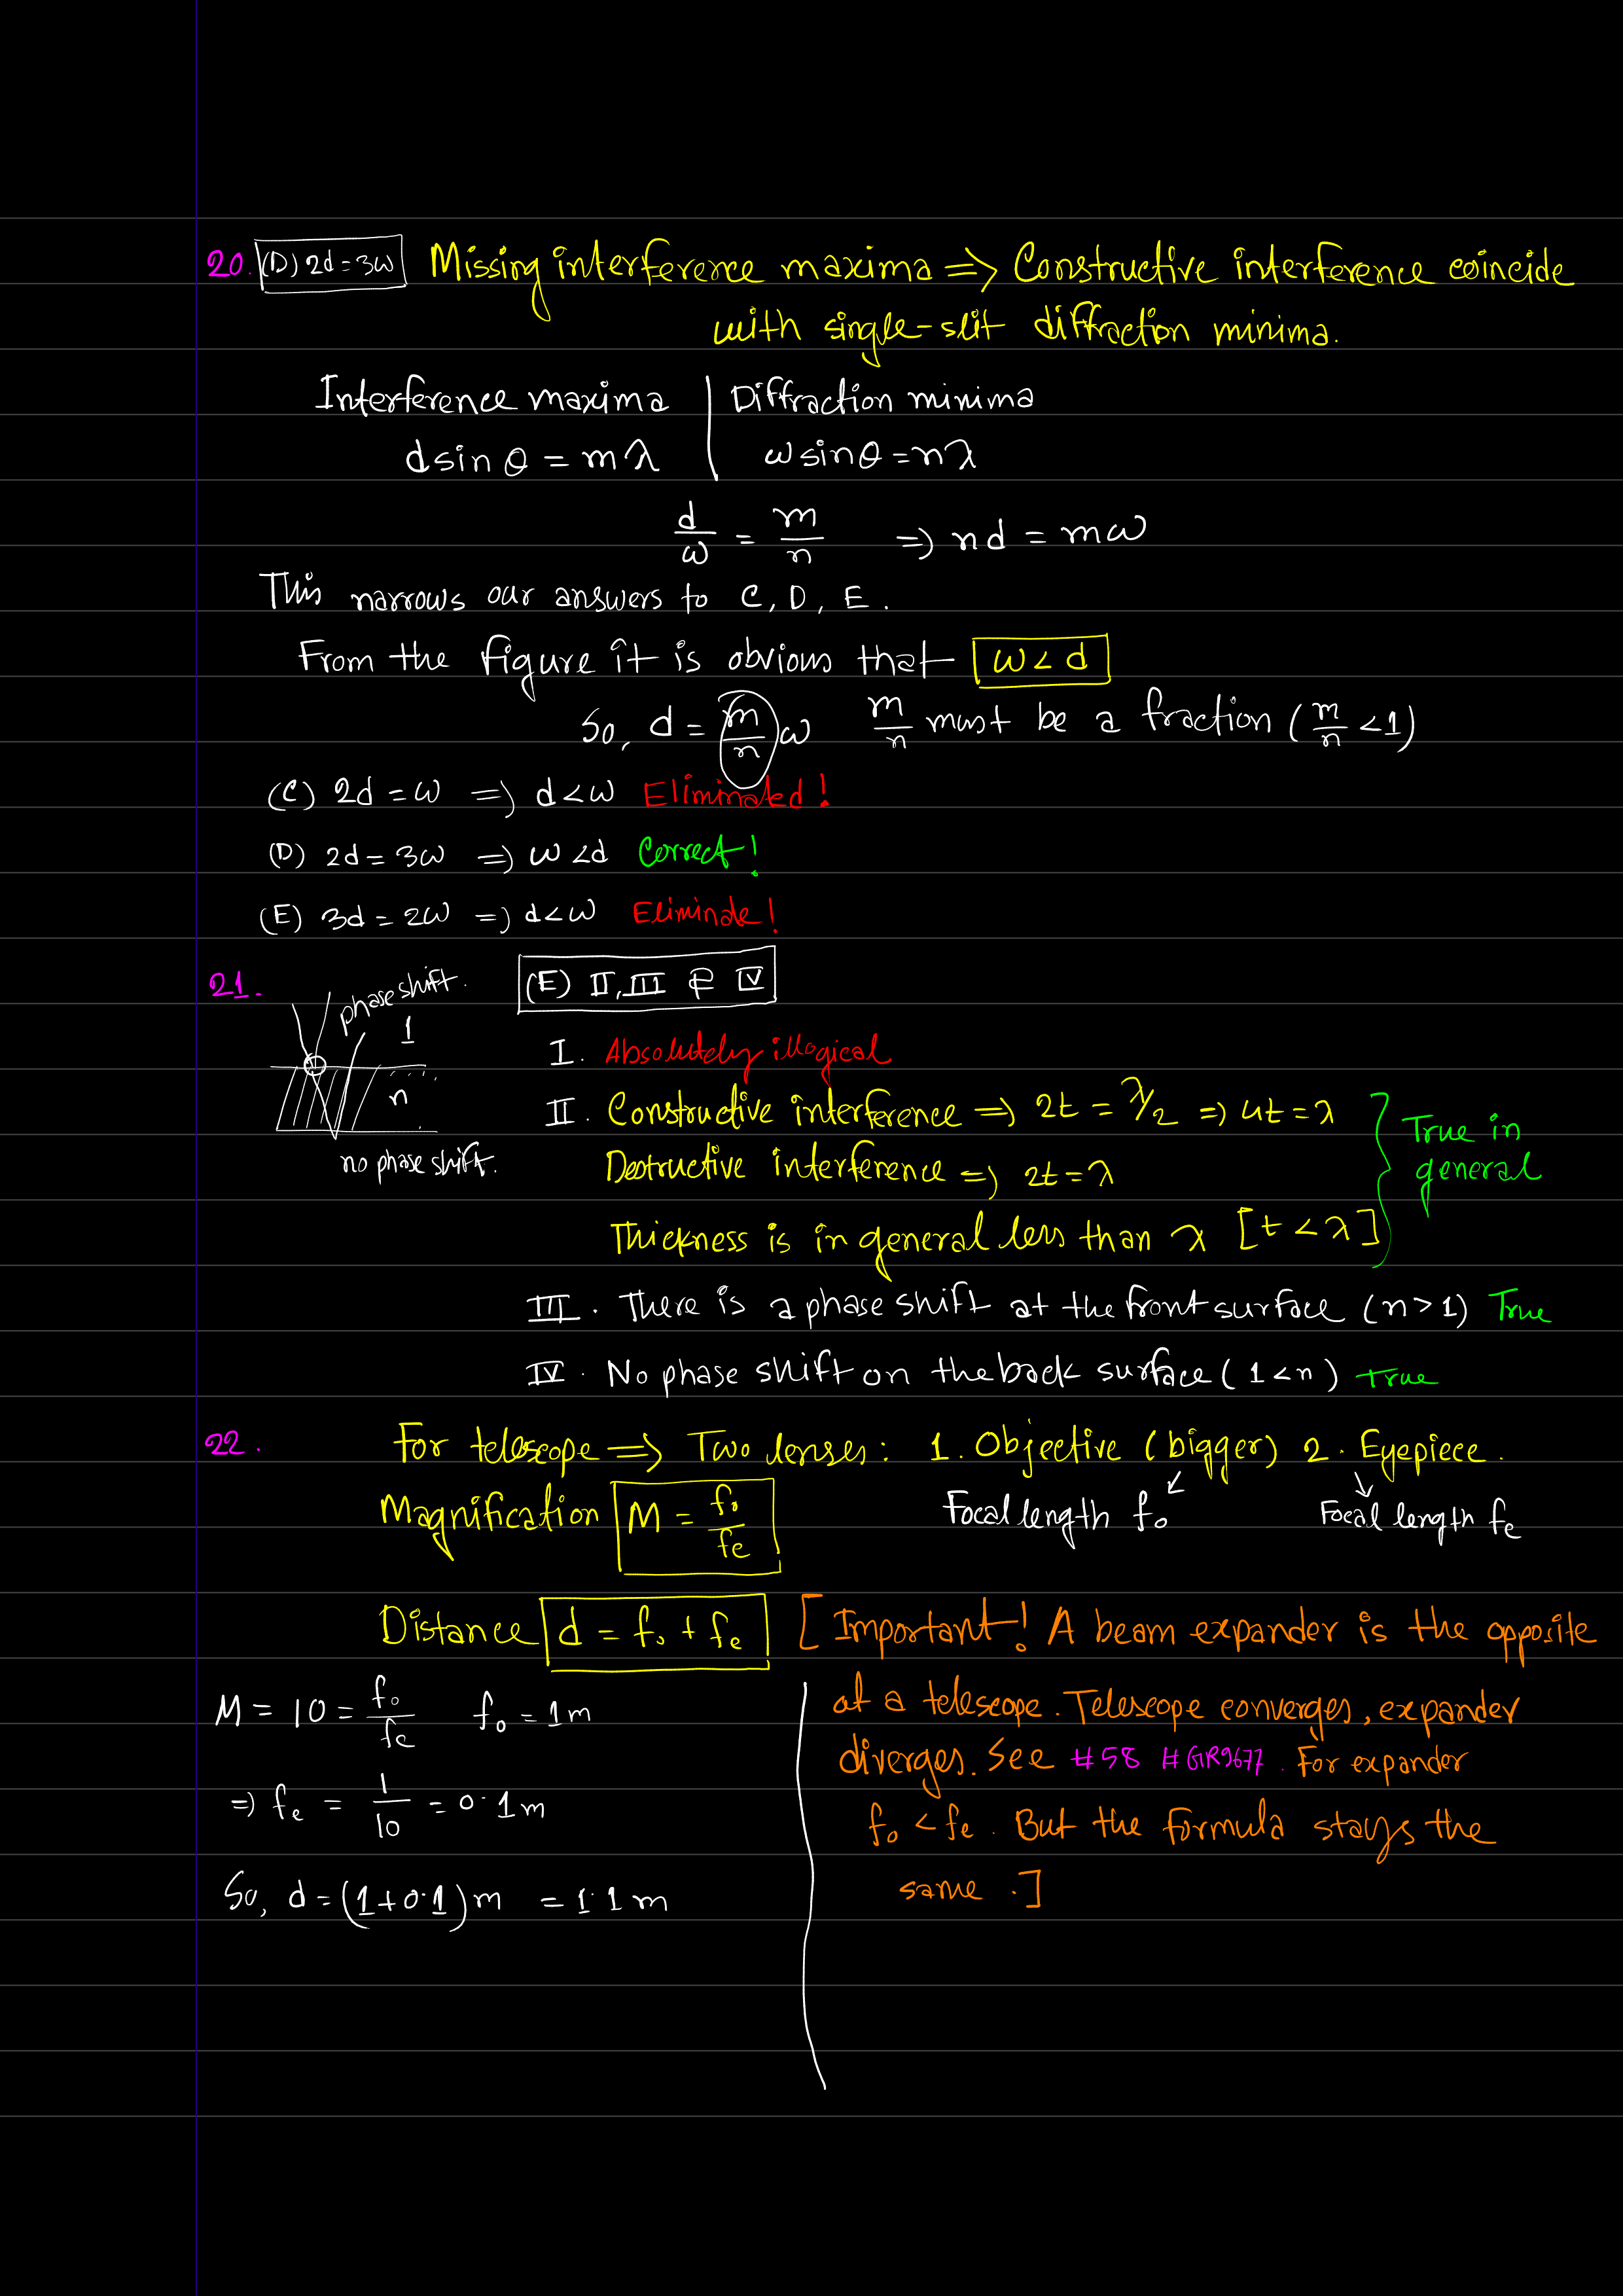 20. (D) 2d = 3ω Missing interference maxima => Constructive interference coincide
with single-slit diffraction minima.
Interference maxima | Diffraction minima
d sin θ = mλ | ω sin θ = nλ
d/ω = m/n => nd = mω
This narrows our answers to C, D, E.
From the figure it is obvious that ω < d
So, d = m/n ω m/n must be a fraction (m/n < 1)
(C) 2d = ω => d < ω Eliminated!
(D) 2d = 3ω => ω < d Correct!
(E) 3d = 2ω => d < ω Eliminate!
21. phase shift. (E) II, III & IV
1
n
no phase shift.
I. Absolutely illogical
II. Constructive interference => 2t = λ/2 => 4t = λ
Destructive interference => 2t = λ
Thickness is in general less than λ [t < λ]
True in
general
III. There is a phase shift at the front surface (n > 1) True
IV. No phase shift on the back surface (1 < n) true
22. For telescope => Two lenses: 1. Objective (bigger) 2. Eyepiece.
Magnification M = fo/fe Focal length fo Focal length fe
Distance d = fo + fe [Important! A beam expander is the opposite
of a telescope. Telescope converges, expander
diverges. See #58 #GR9677. For expander
fo < fe. But the formula stays the
same.]
M = 10 = fo/fe fo = 1m
=> fe = 1/10 = 0.1m
So, d = (1+0.1)m = 1.1m